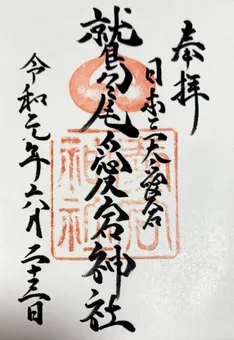 奉拝
日本三大愛宕
鷲尾愛宕神社
令和元年六月二十三日